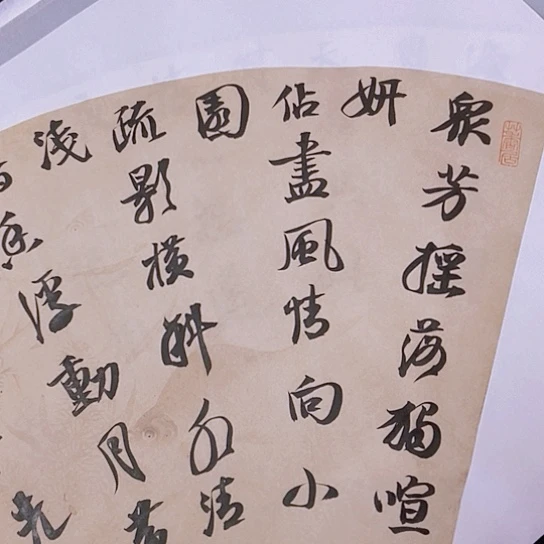 衆芳搖落獨喧
妍
佔盡風情向小
園
疏影橫斜水清
淺
香浮動月黃
先